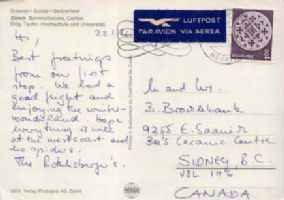 Schweiz - Suisse - Switzerland
Zürich Bahnhofbrücke, Central
Eidg. Techn. Hochschule und Universität
LUFTPOST
PAR AVION VIA AEREA
Hi,
Best greetings
from our first
stop. We had a
good flight and
enjoying the winter-
wonderland. Hope
everything is well
at the westcoast and
the spiders.
The
Mr and Mrs.
B.
9265 E. Saanich
Bee's Ceramic Centre
SIDNEY B.C.
V8L 1H6
CANADA
Verlag Photoglob AG, Zürich